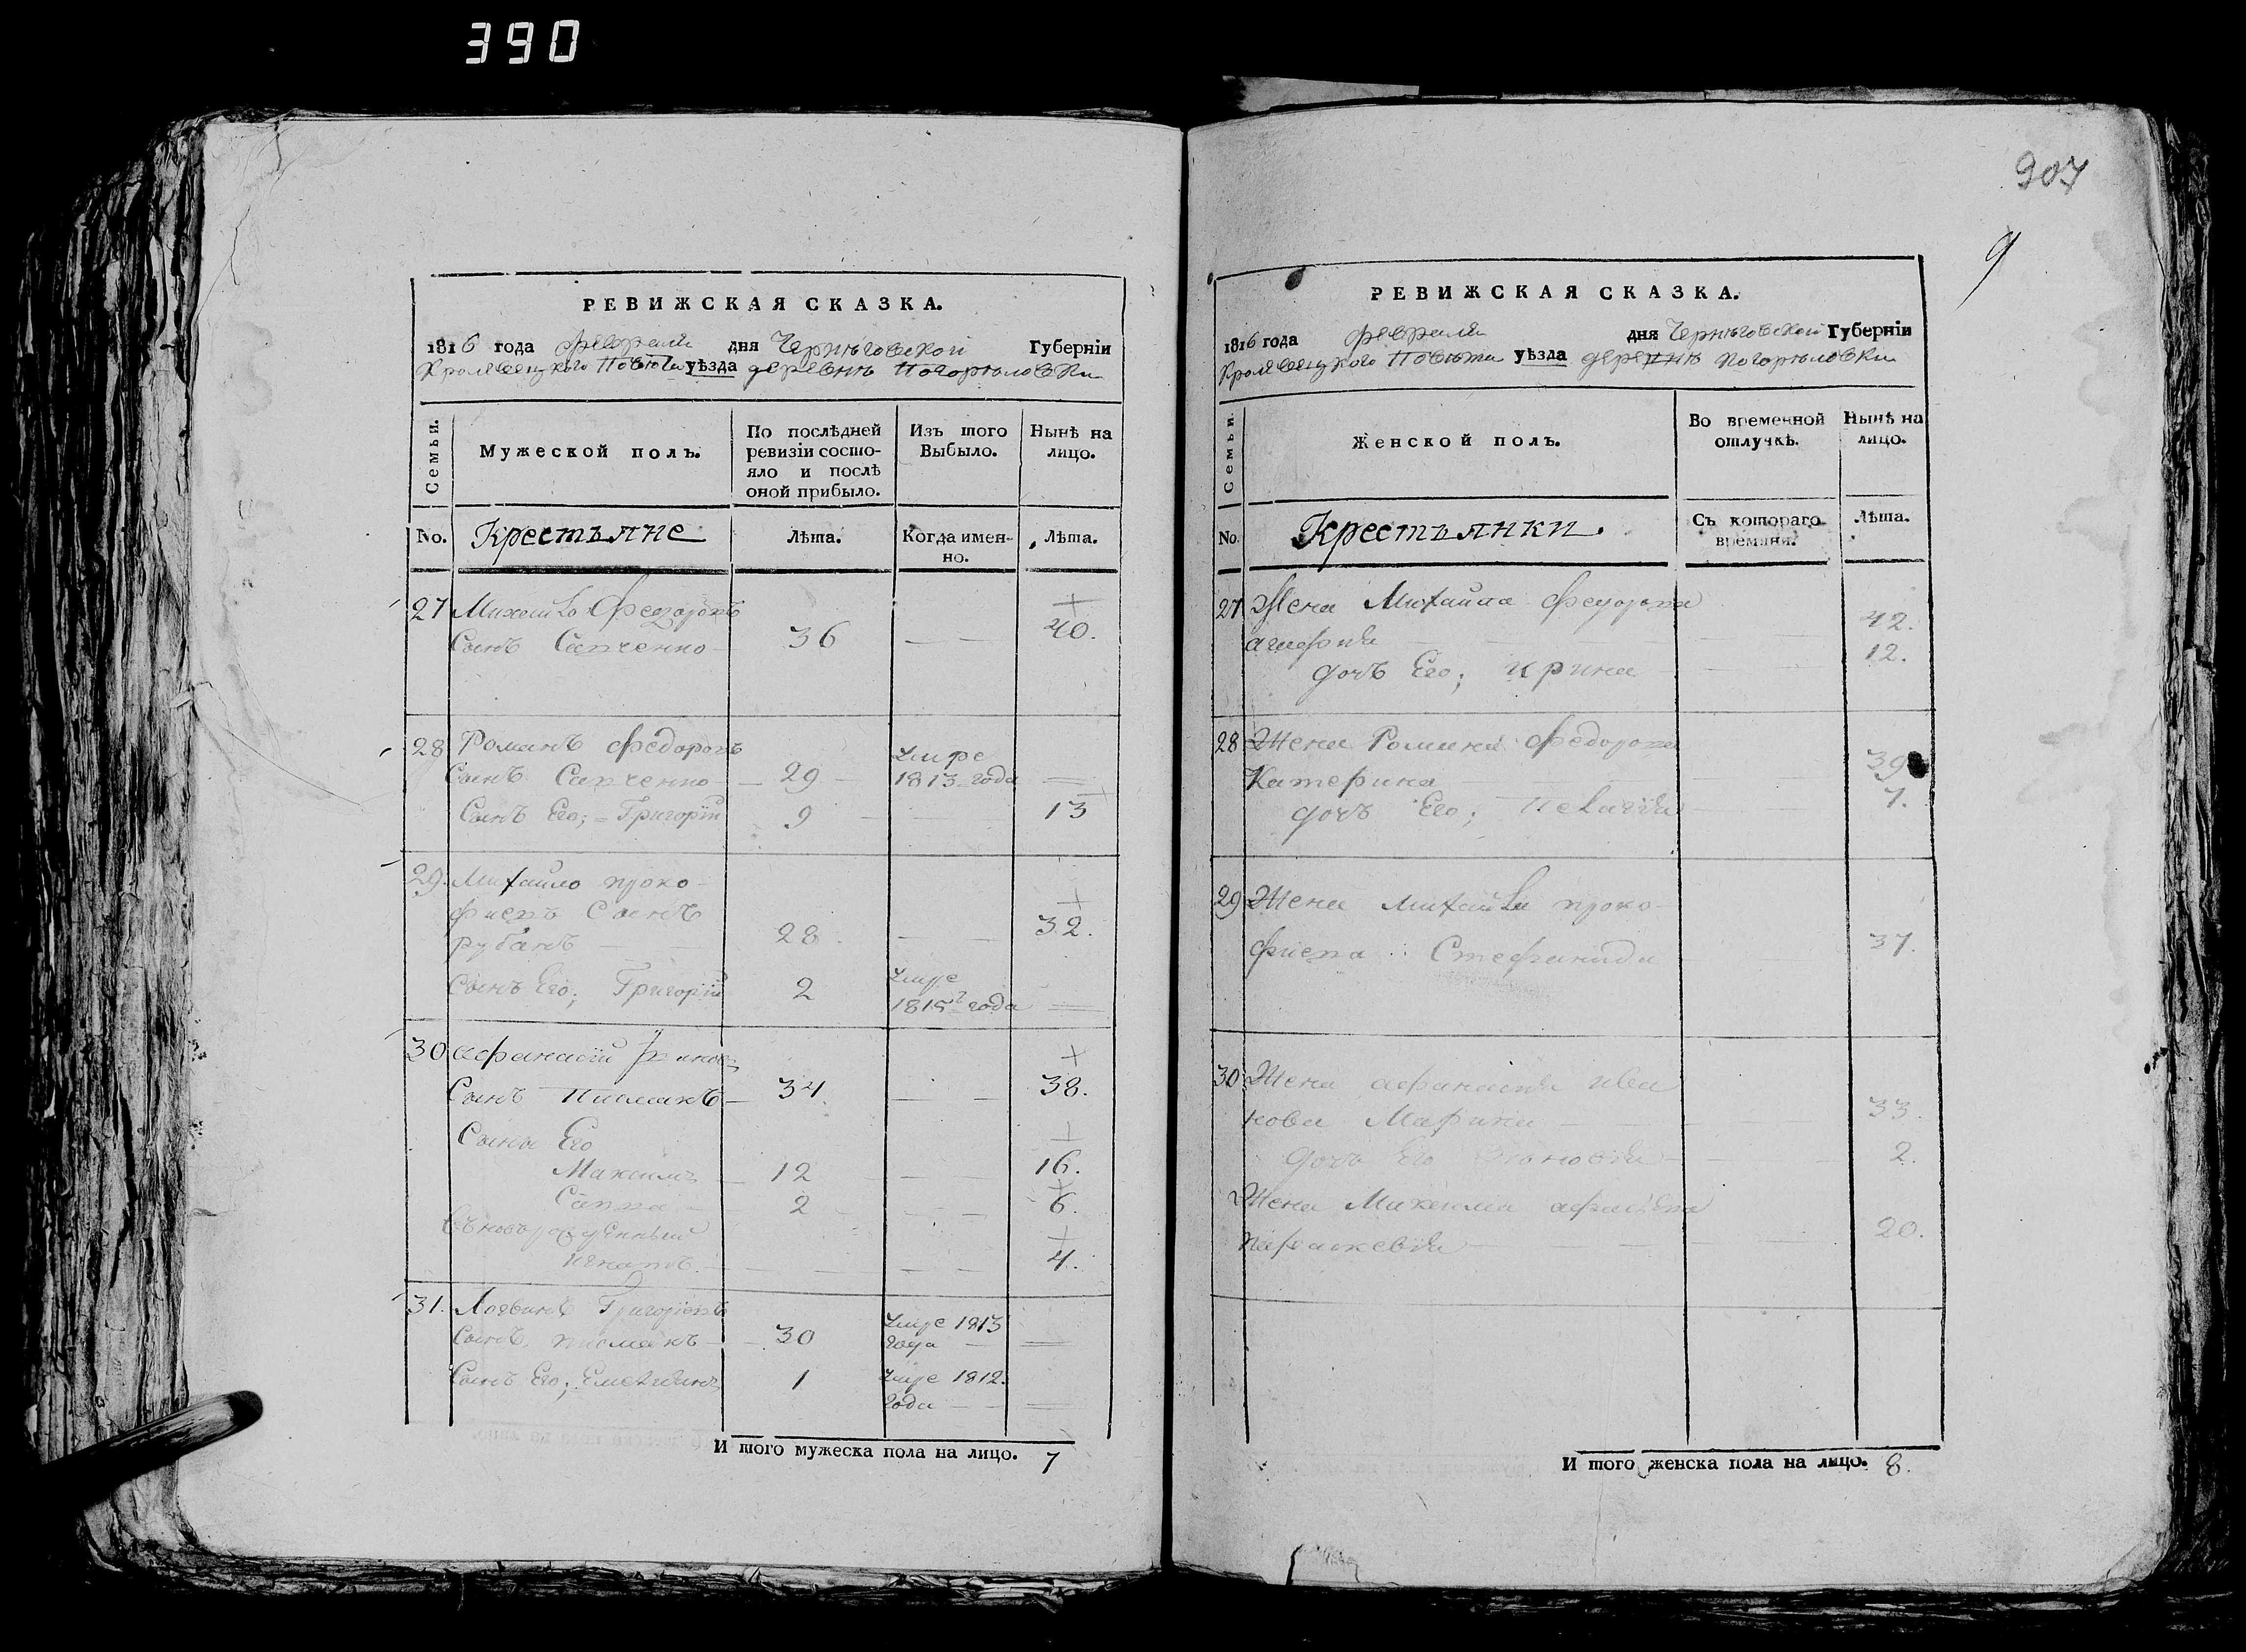 390
907
9
РЕВИЖСКАЯ СКАЗКА.
1816 года февраля дня Черниговской Губерніи
Кролевецкого Повета уѣзда деревнѣ Погорѣловки
Семьи.
Мужеской полъ.
По послѣдней ревизіи состо-
яло и послѣ
оной прибыло.
Изъ того
Выбыло.
Нынѣ на
лицо.
No.
Крестьяне
Лѣта.
Когда имен-
но.
Лѣта.
27 Михайло Федоровъ
сынъ Савченко 36 40.
28 Романъ Федоровъ
сынъ Савченко 29 умре 1813 года
сынъ Его; Григорій 9 13
29. Михайло проко-
фиевъ сынъ
рубанъ 28 32.
сынъ Его; Григорій 2 умре 1815 года
30 афанасій
сынъ 34 38.
сыны Его
Максимъ 12 16.
Савва 2 6.
Игнатъ 4.
31. Логвинъ Григорiевъ
сынъ 30 умре 1813 года
сынъ Его; Емельянъ 1 умре 1812. года
И того мужеска пола на лицо. 7
РЕВИЖСКАЯ СКАЗКА.
1816 года февраля дня Черниговской Губерніи
Кролевецкого Повета уѣзда деревнѣ Погорѣловки
Семьи.
Женской полъ.
Во временной
отлучкѣ.
Нынѣ на
лицо.
No.
Крестьянки.
Съ котораго
времяни.
Лѣта.
27 Жена Михайла Федорова
агафия 42.
дочь Его; Ирина 12.
28 Жена Романа Федорова
Катерина 39
дочь Его; Пелагія 7.
29 Жена Михайла проко-
фиева Стефанида 37.
30 Жена афанасия ива
нова Марина 33.
дочь Его 2.
Жена Максима
параскевія 20.
И того женска пола на лицо. 8.